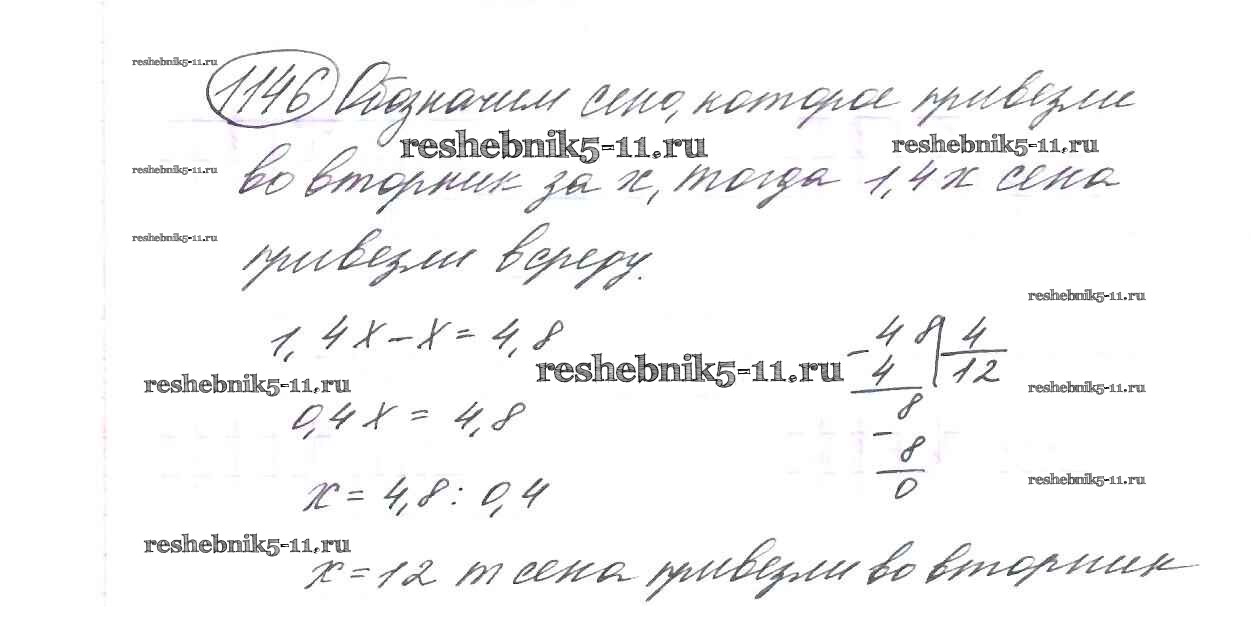 reshebnik5-11.ru
1146 Обозначим сено, которое привезли
reshebnik5-11.ru reshebnik5-11.ru
reshebnik5-11.ru
во вторник за х, тогда 1,4х сена
reshebnik5-11.ru
привезли в среду.
reshebnik5-11.ru
1,4х-х=4,8
- 48 | 4
4 12
reshebnik5-11.ru
reshebnik5-11.ru
reshebnik5-11.ru
0,4х = 4,8
8
- 8
reshebnik5-11.ru
0
х = 4,8 : 0,4
reshebnik5-11.ru
х = 12 т сена привезли во вторник